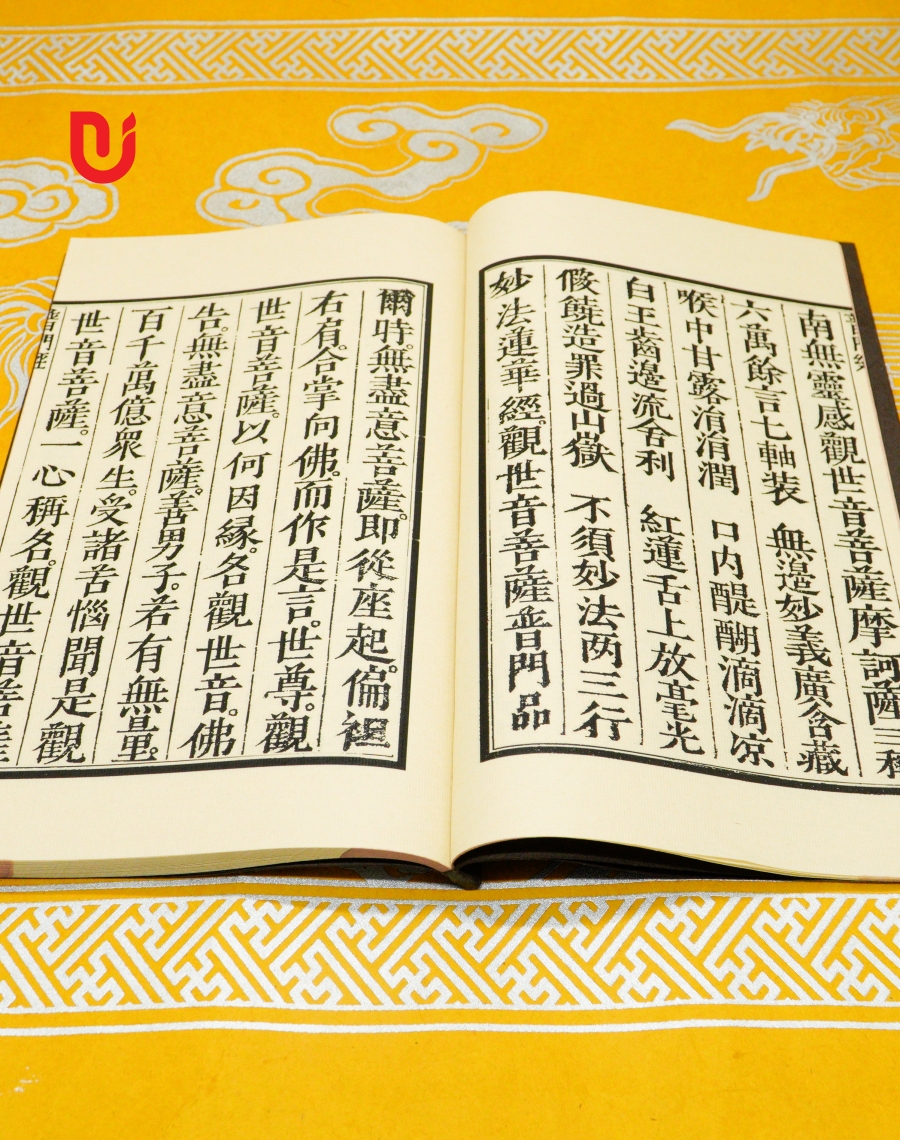 南無靈感觀世音菩薩摩訶薩三稱
六萬餘言七軸装 無邊妙義廣含藏
喉中甘露涓涓潤 口内醍醐滴滴凉
白玉齒邊流舍利 紅蓮舌上放毫光
假饒造罪過山嶽 不須妙法两三行
妙法蓮華經。觀世音菩薩普門品
爾時。無盡意菩薩。即從座起。偏袒
右肩。合掌向佛。而作是言。世尊。觀
世音菩薩。以何因緣。名觀世音。佛
告。無盡意菩薩。善男子。若有無量。
百千萬億衆生。受諸苦惱聞是觀
世音菩薩。一心稱名。觀世音菩薩